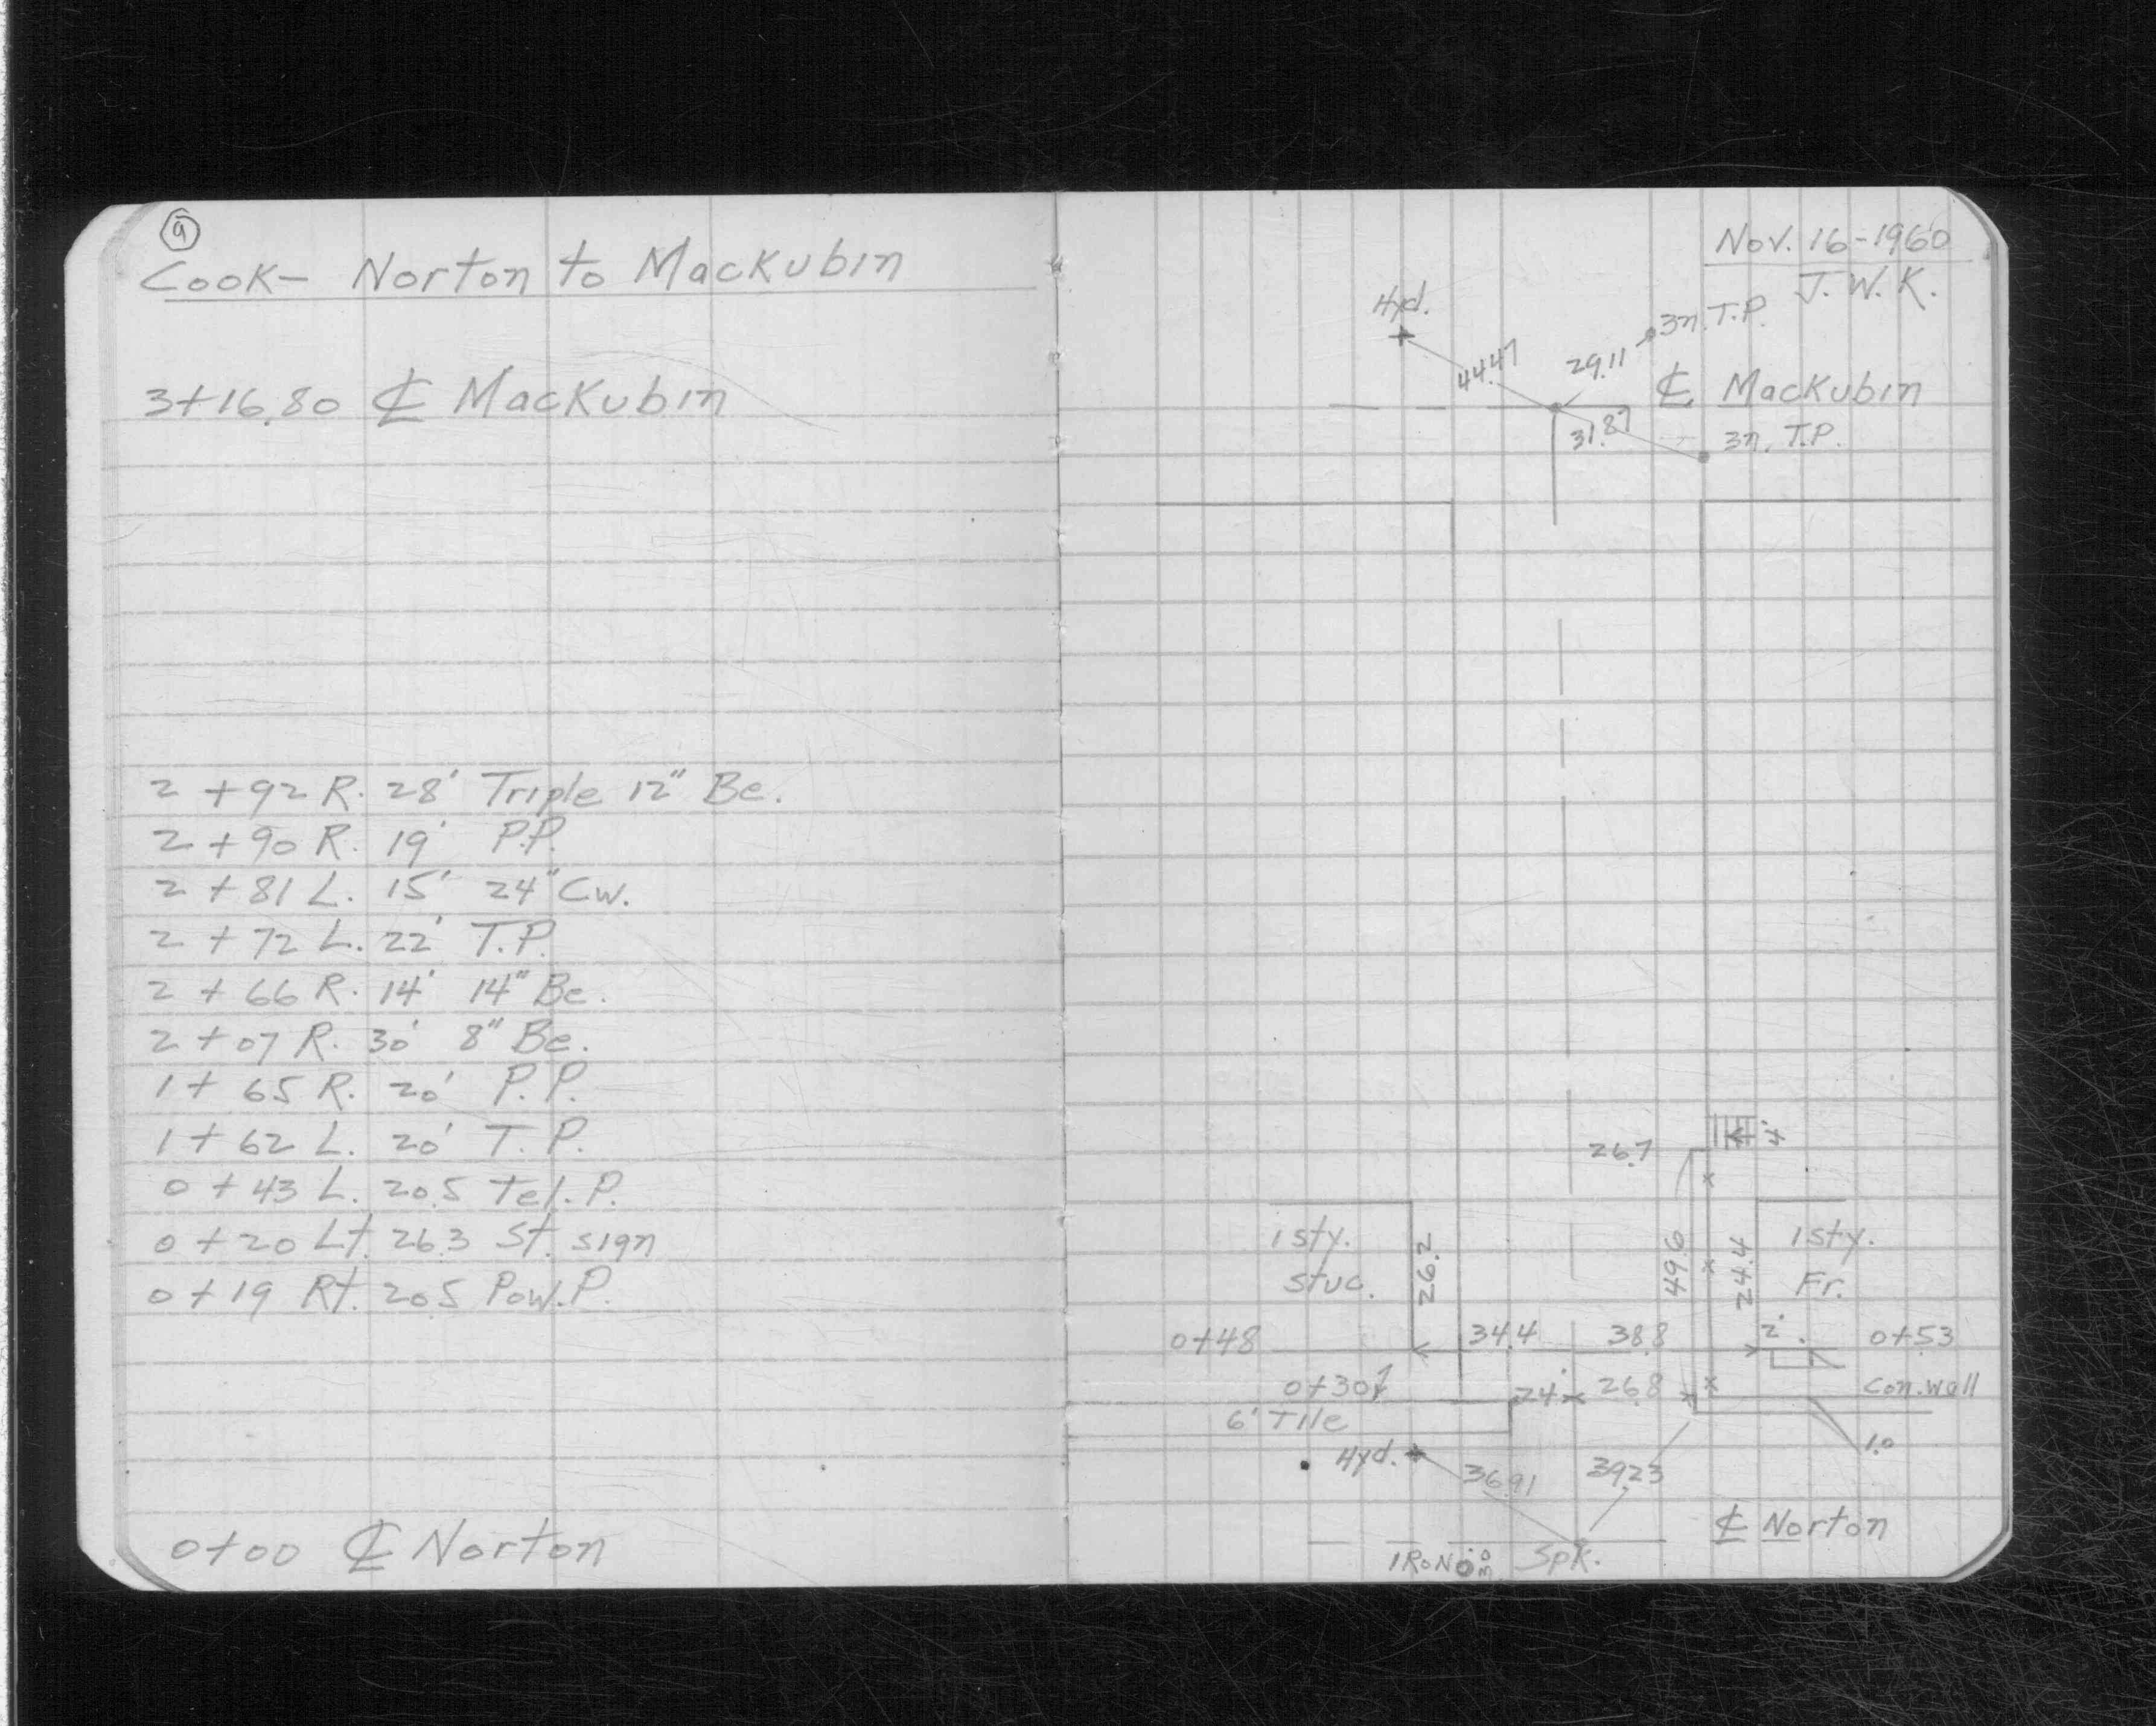 9
Cook- Norton to Mackubin
3+16.80 ℄ Mackubin
2 +92 R. 28' Triple 12" Be.
2 +90 R. 19' P.P.
2 +81 L. 15' 24" Cw.
2 +72 L. 22' T.P.
2 +66 R. 14' 14" Be.
2 +07 R. 30' 8" Be.
1+ 65 R. 20' P.P.
1+ 62 L. 20' T.P.
0 +43 L. 20.5 Tel. P.
0 +20 Lt. 26.3 St. sign
0 +19 Rt. 20.5 Pow. P.
0+00 ℄ Norton
Nov. 16-1960
J.W.K.
Hyd.
3n. T.P.
44.47
29.11
℄ Mackubin
31.87
3n. T.P.
26.7
4'
1 sty.
Stuc.
26.2
49.6
24.4
1 sty.
Fr.
0+48
34.4
38.8
2'
0+53
0+30
24
26.8
Con. wall
6' Tile
Hyd.
36.91
39.23
1.0
℄ Norton
IRON
Spk.